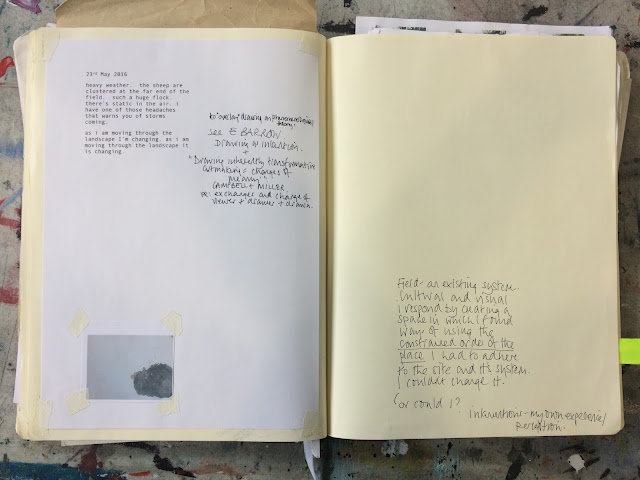 23rd May 2016
heavy weather. the sheep are
clustered at the far end of the
field. such a huge flock.
there's static in the air. i
have one of those headaches
that warns you of storms
coming.
as i am moving through the
landscape I'm changing. as i am
moving through the landscape it
is changing.
to 'overlay' drawing on
theory.
see E BARROW.
Drawing w intuition.
+
"Drawing inherently transformative
artmaking = changes of
meaning"
CAMPBELL + MILLER
re: exchanges and change of
viewer + drawer + drawing.
Field - an existing system.
Cultural and visual
I respond by creating a
space in which I found
ways of using the
constrained order of the
place I had to adhere
to the site and its system.
I couldn't change it.
'or could i?
interventions - my own experience/
perception.